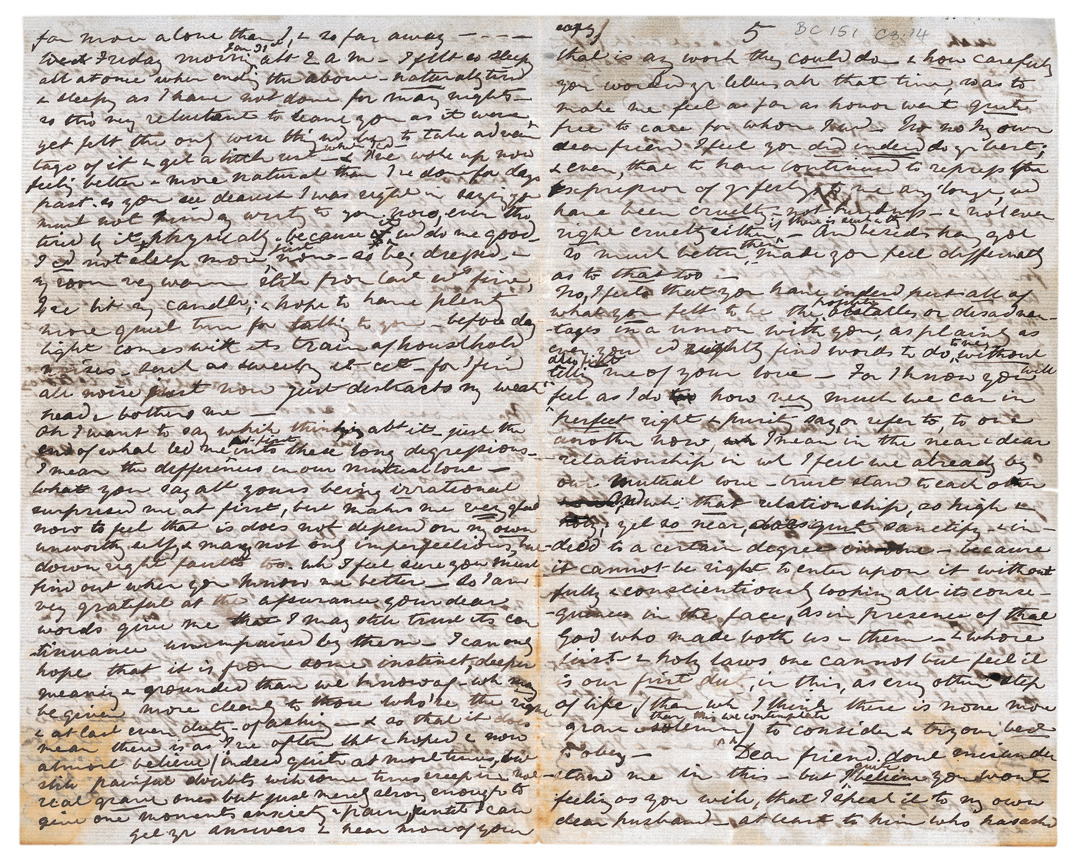 far more alone than I, & so far away - - - -
Friday morn'g abt 2 A M - I felt so sleepy
all at once when end'g the above - naturally tired
& sleepy as I have not done for many nights -
so tho' very reluctant to leave you as it were,
yet felt the only wise th'g wd be to take advan-
tage of it & get a little rest - & I've woke up now
feel'g better & more natural than I've done for days
past. so you see dearest I was right in say'g you
must not mind my writ'g to you now, even tho'
tired by it physically - because it wd do me good -
I cd not sleep more now - so be'g dressed, &
my room very warm still from last eve's fire,
I've lit my candle, & hope to have plenty
more quiet time for talking to you - before day
light comes with its train of household
noises, such as sweep'g it - cet - for I find
all noise just now just distracts my weak
head & bothers me -
Oh I want to say while think'g abt it - just the
end of what led me into these long digressions -
I mean the difference in our mutual love -
What you say abt yours being irrational
surprised me at first, but makes me very glad
now to feel that it does not depend on my own
unworthy self, & may not only imperfections, but
down right faults too. wh I feel sure you must
find out when you know me better - so I am
very grateful at the assurance your dear
words give me that I may still trust its con
-tinuance unimpaired by them - I can only
hope that it is from some instinct deeper
meaning & grounded than we know of - wh may
be given more clearly to those who've the right
& at last even duty of asking - & so that it does
mean there is as I've often tht & hoped & now
almost believe (indeed quite at most times, but
still painful doubts will some times creep in not
real grave ones but just merely strong enough to
give one moments anxiety & pain, until I can
get yr answers & hear more of your
copy 5 BC 151 CB.14
that is any work they could do - & how carefully
you worded yr letters abt that time, so as to
make me feel as far as honor went quite
free to care for whom I wd - No no my own
dear friend I feel you did indeed do yr best;
& even, that to have continued to repress the
expression of yr feel'gs to me any longer, wd
have been cruelty, not kindness - & not even
right cruelty either - And besides hav'g got
so much better then, made you feel differently
as to that too -
No, I feel that you have indeed put all of
what you felt to be the obstacles or disadvan-
tages in a union with you, as plainly as
ever you cd rightly find words to do, without
tell'g me of your love - For I know you will
feel as I do how very much we can in
perfect right & purity say or refer to, to one
another now wh I mean in the near & dear
relationship in wh I feel we already by
our mutual love - trust stand to each other
that relationship, so high &
holy, yet so near does quite sanctify & in-
deed to a certain degree - because
it cannot be right to enter upon it without
fully & conscientiously looking all its conse-
quences in the face, as in presence of that
God who made both us - them - & whose
just & holy laws one cannot but feel it
is our first duty, in this, as every other step
of life (than wh I think there is none more
grave & solemn, than this we contemplate) to consider & try our best
to obey - Dear friend, dont misunder
stand me in this - but I quite believe you wont
feeling as you will, that I speak it to my own
dear husband - at least to him who has as